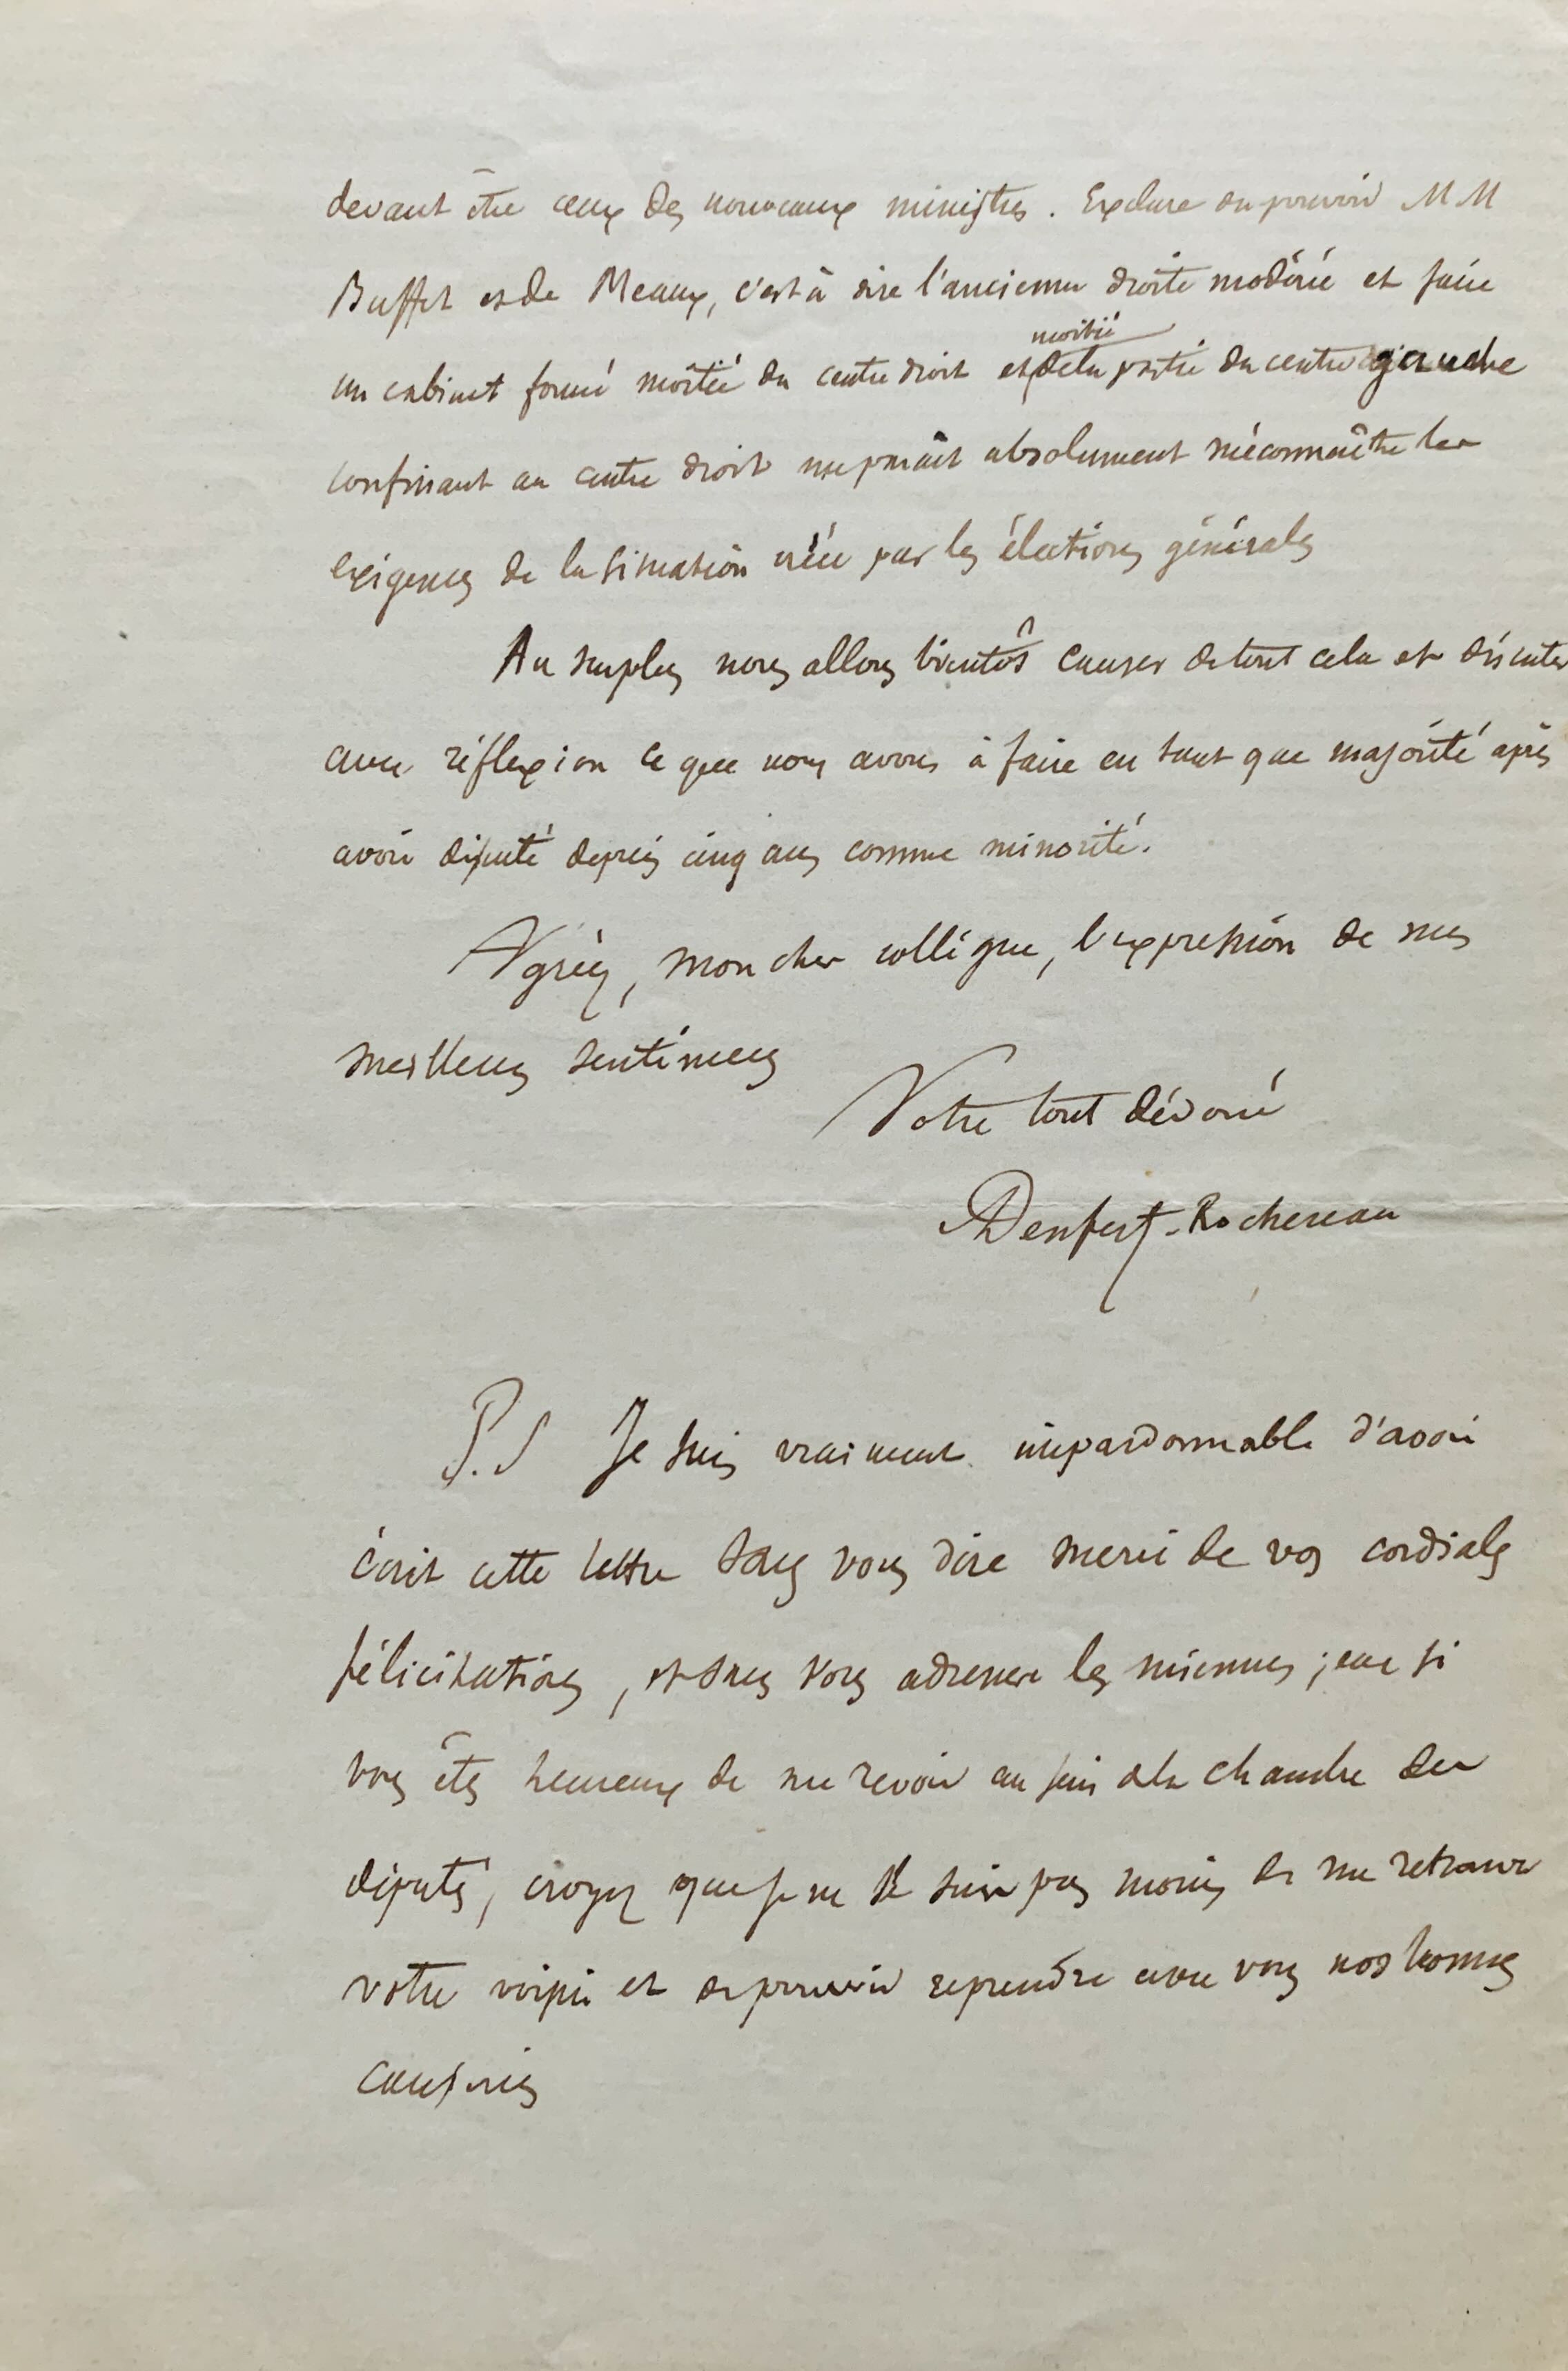 devant être ceux des nouveaux ministres. Exclure du pouvoir MM
Buffet et de Meaux, c'est à dire l'ancienne droite modérée et faire
un cabinet formé moitié du centre droit et moitié de la partie du centre gauche
confinant au centre droit me paraît absolument méconnaître les
exigences de la situation créée par les élections générales
Au surplus nous allons bientôt causer de tout cela et discuter
avec réflexion ce que nous avons à faire en tant que majorité après
avoir discuté depuis cinq ans comme minorité.
Agréez, mon cher collègue, l'expression de mes
meilleurs sentimens
Votre tout dévoué
ADenfert-Rochereau
P.S Je suis vraiment impardonnable d'avoir
écrit cette lettre sans vous dire merci de vos cordiales
félicitations, et sans vous adresser les miennes; car si
vous êtes heureux de me revoir au sein de la chambre des
députés, croyez que je ne le suis pas moins de me retrouver
votre voisin et de pouvoir reprendre avec vous nos bonnes
causeries